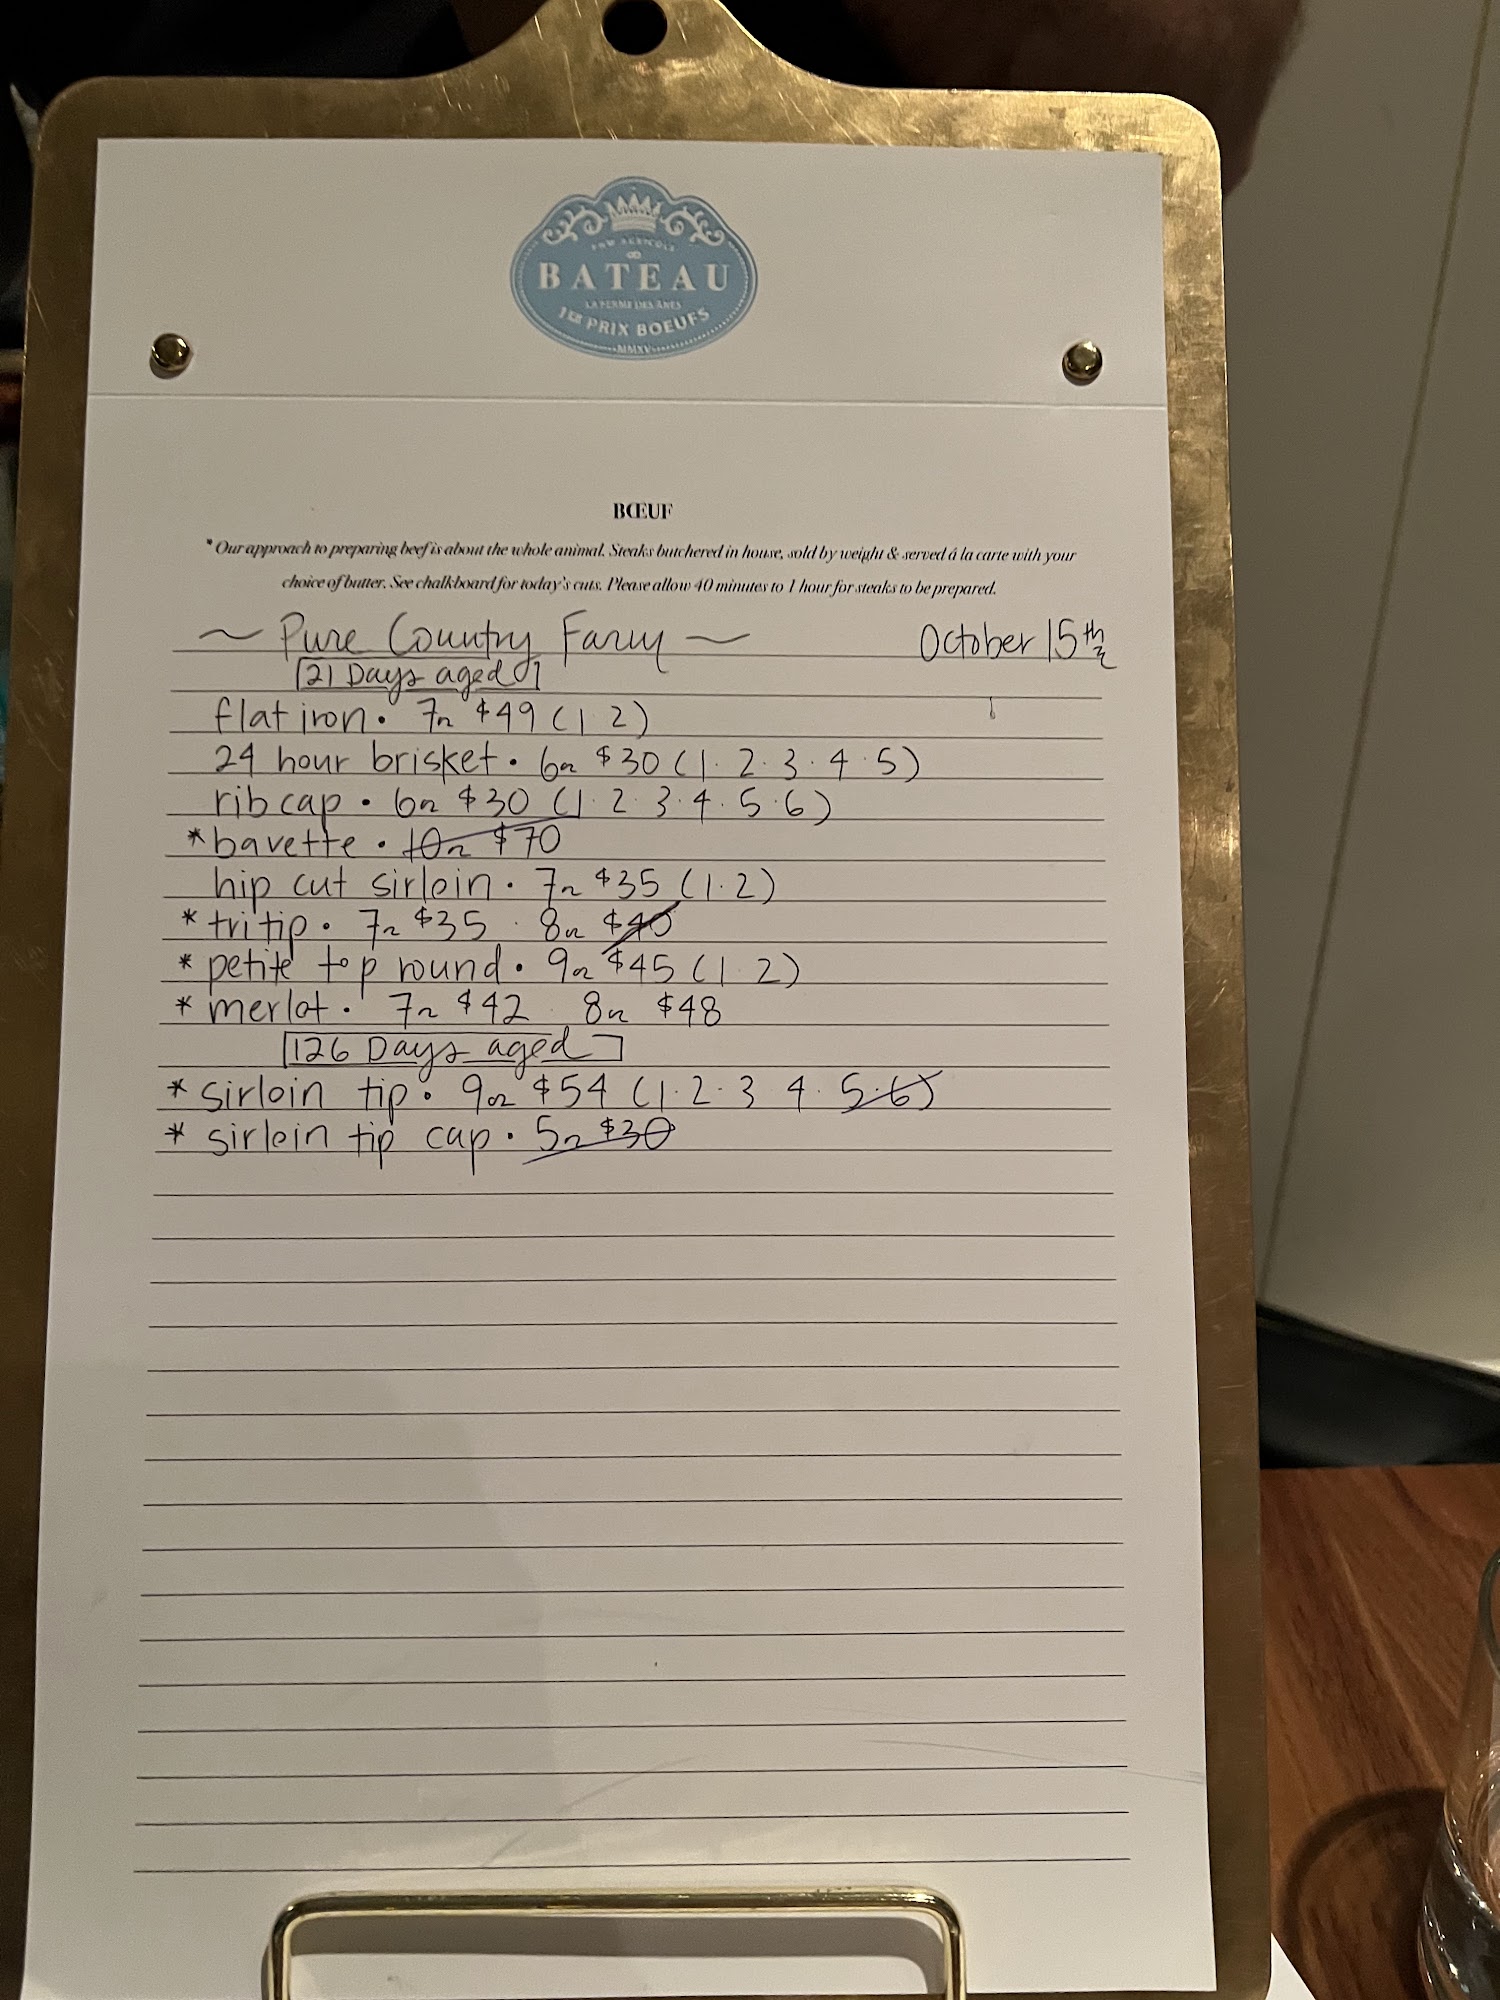 BATEAU
LA FERME DES ANES
1ER PRIX BOEUFS
MMXV
BŒUF
*Our approach to preparing beef is about the whole animal. Steaks butchered in house, sold by weight & served á la carte with your
choice of butter. See chalkboard for today's cuts. Please allow 40 minutes to 1 hour for steaks to be prepared.
~ Pure Country Farm ~ October 15th
[21 Days aged]
flat iron • 7oz $49 (1·2)
24 hour brisket • 6oz $30 (1·2·3·4·5)
rib cap • 6oz $30 (1·2·3·4·5·6)
*bavette • 10oz $70
hip cut sirloin • 7oz $35 (1·2)
*tri tip • 7oz $35 · 8oz $40
*petite top round • 9oz $45 (1·2)
*merlot • 7oz $42 8oz $48
[126 Days aged]
*sirloin tip • 9oz $54 (1·2·3·4·5·6)
*sirloin tip cap • 5oz $30